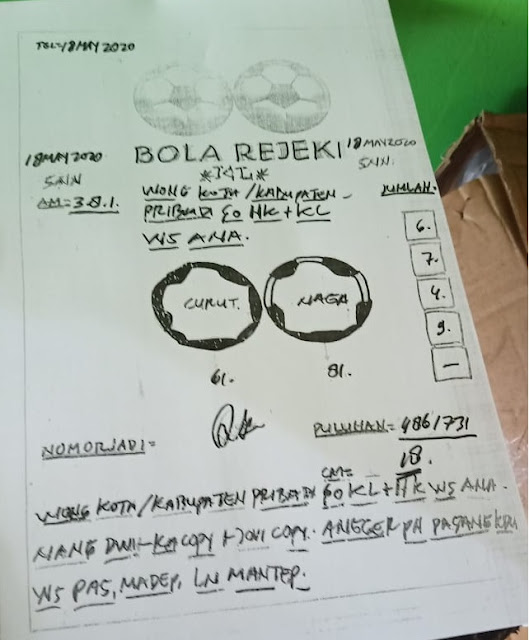 TGL=18 MAY 2020
18 MAY 2020
SNN
AM=3.8.1.
BOLA REJEKI
18 MAY 2020
SNN.
WONG KOTA/KABUPATEN
PRIBADI GO HK+KL
WS ANA.
JUMLAH.
6.
7.
4.
9.
–
CURUT.
NAGA.
61.
81.
NOMOR JADI=
PULUHAN= 486/731
18.
CM=
WONG KOTA/KABUPATEN PRIBADI GO KL+HK WS ANA.
NANG DWI-KA COPY + JOVI COPY. ANGGER PN PASANG KDU
WS PAS, MADEP, LN MANTEP.